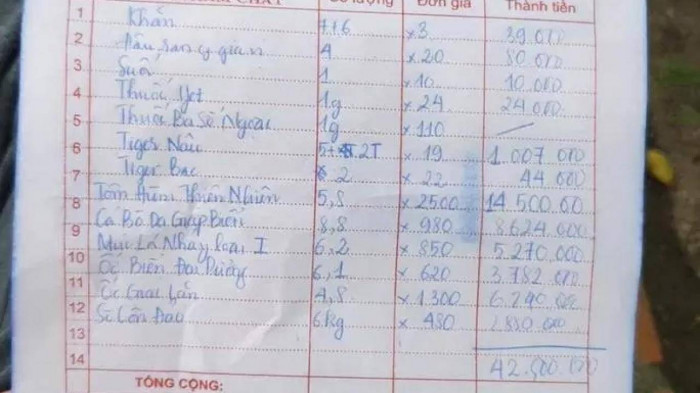 Số lượng Đơn giá Thành tiền
1 Khăn 7+6 x3 39.000
2 4 x20 80.000
3 Suối 1 x10 10.000
4 Thuốc Jet 1g x24 24.000
5 Thuốc Ba Số Ngoại 1g x110
6 Tiger Nâu 5+ 2T x19 1.007.000
7 Tiger Bạc 2 x22 44.000
8 Tôm Hùm Thiên Nhiên 5,8 x2500 14.500.000
9 Cá Bò Da Giáp Biển 8,8 x980 8.624.000
Mực Lá Nháy loại I 6,2 x850 5.270.000
10 Ốc Biển Đại Dương 6,1 x620 3.782.000
11 Ốc Gai Lớn 4,8 x1300 6.240.000
12 Sò Lớn 6kg x480 2.880.000
13
14 42.500.000
TỔNG CỘNG: